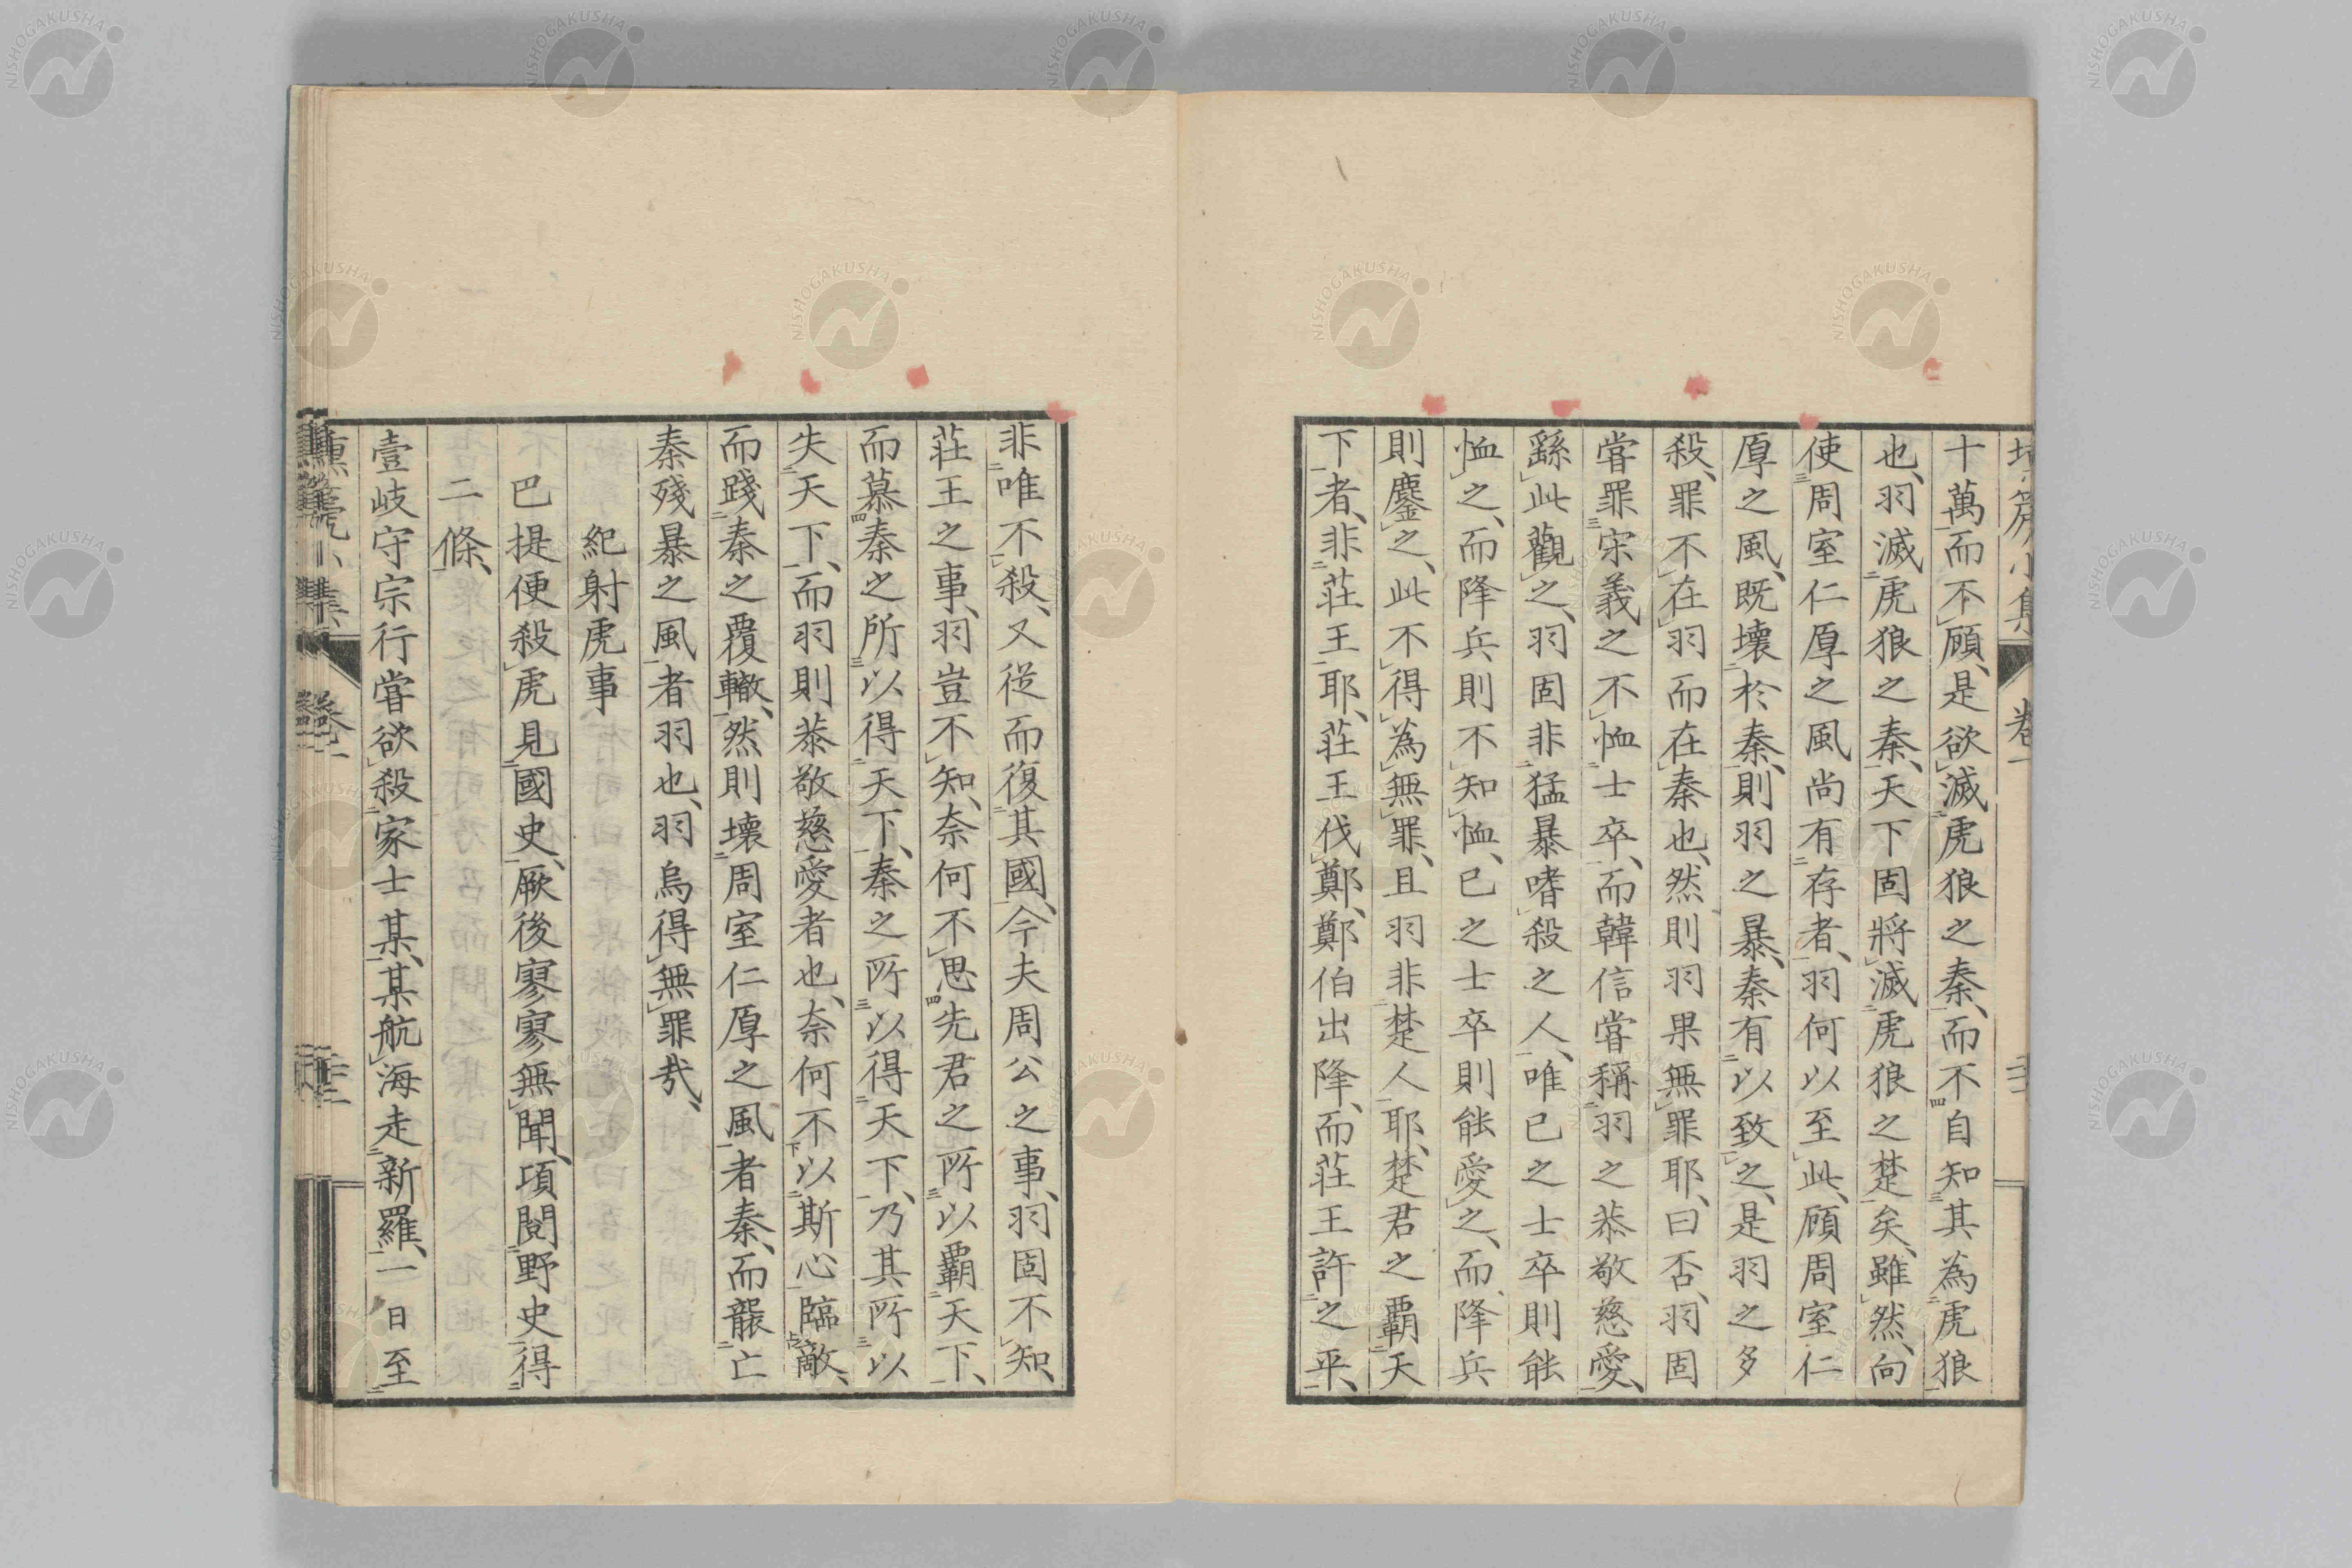 十萬而不顧、是欲滅虎狼之秦、而不自知其為虎狼
也、羽滅虎狼之秦、天下固將滅虎狼之楚矣、雖然、向
使周室仁厚之風尚有存者、羽何以至此、顧周室仁
厚之風、既壞於秦、則羽之暴、秦有以致之、是羽之多
殺、罪不在羽而在秦也、然則羽果無罪耶、曰否、羽固
嘗罪宋義之不恤士卒、而韓信嘗稱羽之恭敬慈愛、
繇此觀之、羽固非猛暴嗜殺之人、唯已之士卒則能
恤之、而降兵則不知恤、已之士卒則能愛之、而降兵
則鏖之、此不得為無罪、且羽非楚人耶、楚君之覇天
下者、非莊王耶、莊王伐鄭、鄭伯出降、而莊王許之平、
非唯不殺、又從而復其國、今夫周公之事、羽固不知、
莊王之事、羽豈不知、奈何不思先君之所以覇天下、
而慕秦之所以得天下、秦之所以得天下、乃其所以
失天下、而羽則恭敬慈愛者也、奈何不以斯心臨敵、
而踐秦之覆轍、然則壞周室仁厚之風者秦、而襲亡
秦殘暴之風者羽也、羽烏得無罪哉、
紀射虎事
巴提便殺虎見國史、厥後寥寥無聞、項閱野史得
二條、
壹岐守宗行嘗欲殺家士某、某航海走新羅、一日至
NISHOGAKUSHA